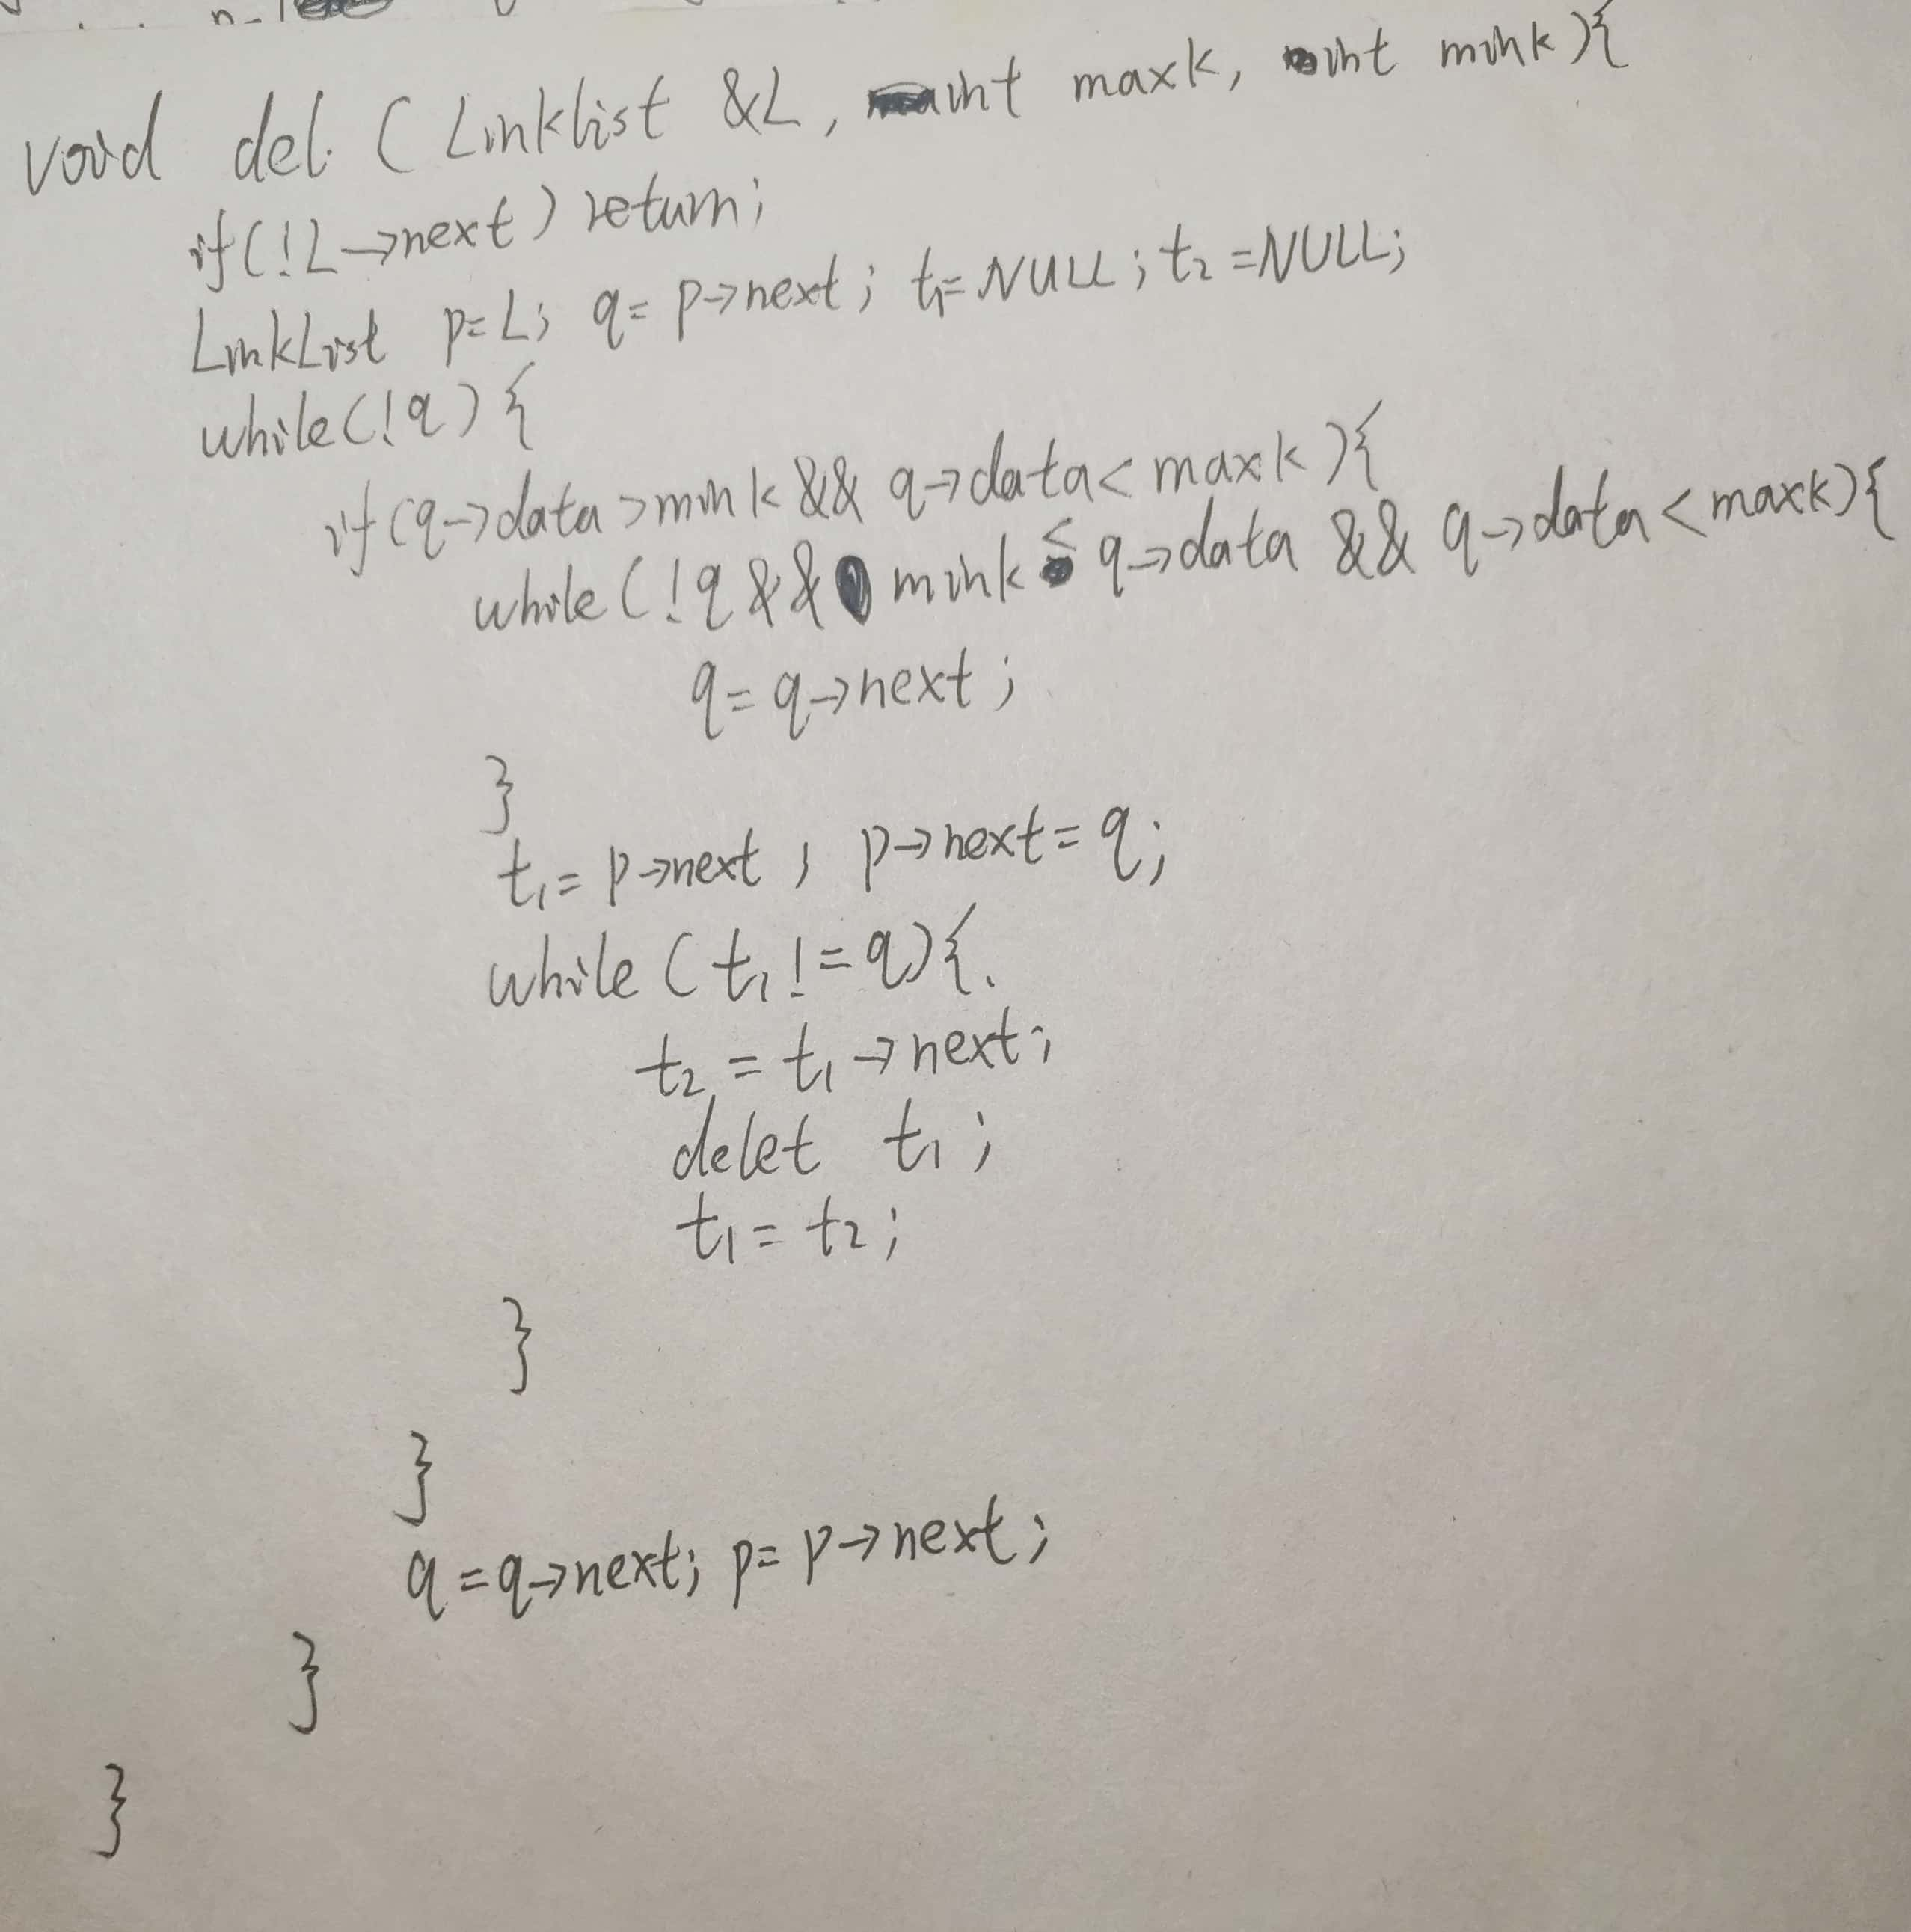 void del (Linklist &L, int maxk, int mink){
if(!L->next) return;
LinkList p=L; q=p->next; t1=NULL; t2=NULL;
while(!q){
if(q->data>mink && q->data<maxk){
while(!q && mink≤q->data && q->data<maxk){
q=q->next;
}
t1=p->next; p->next=q;
while(t1!=q){
t2=t1->next;
delet t1;
t1=t2;
}
}
q=q->next; p=p->next;
}
}